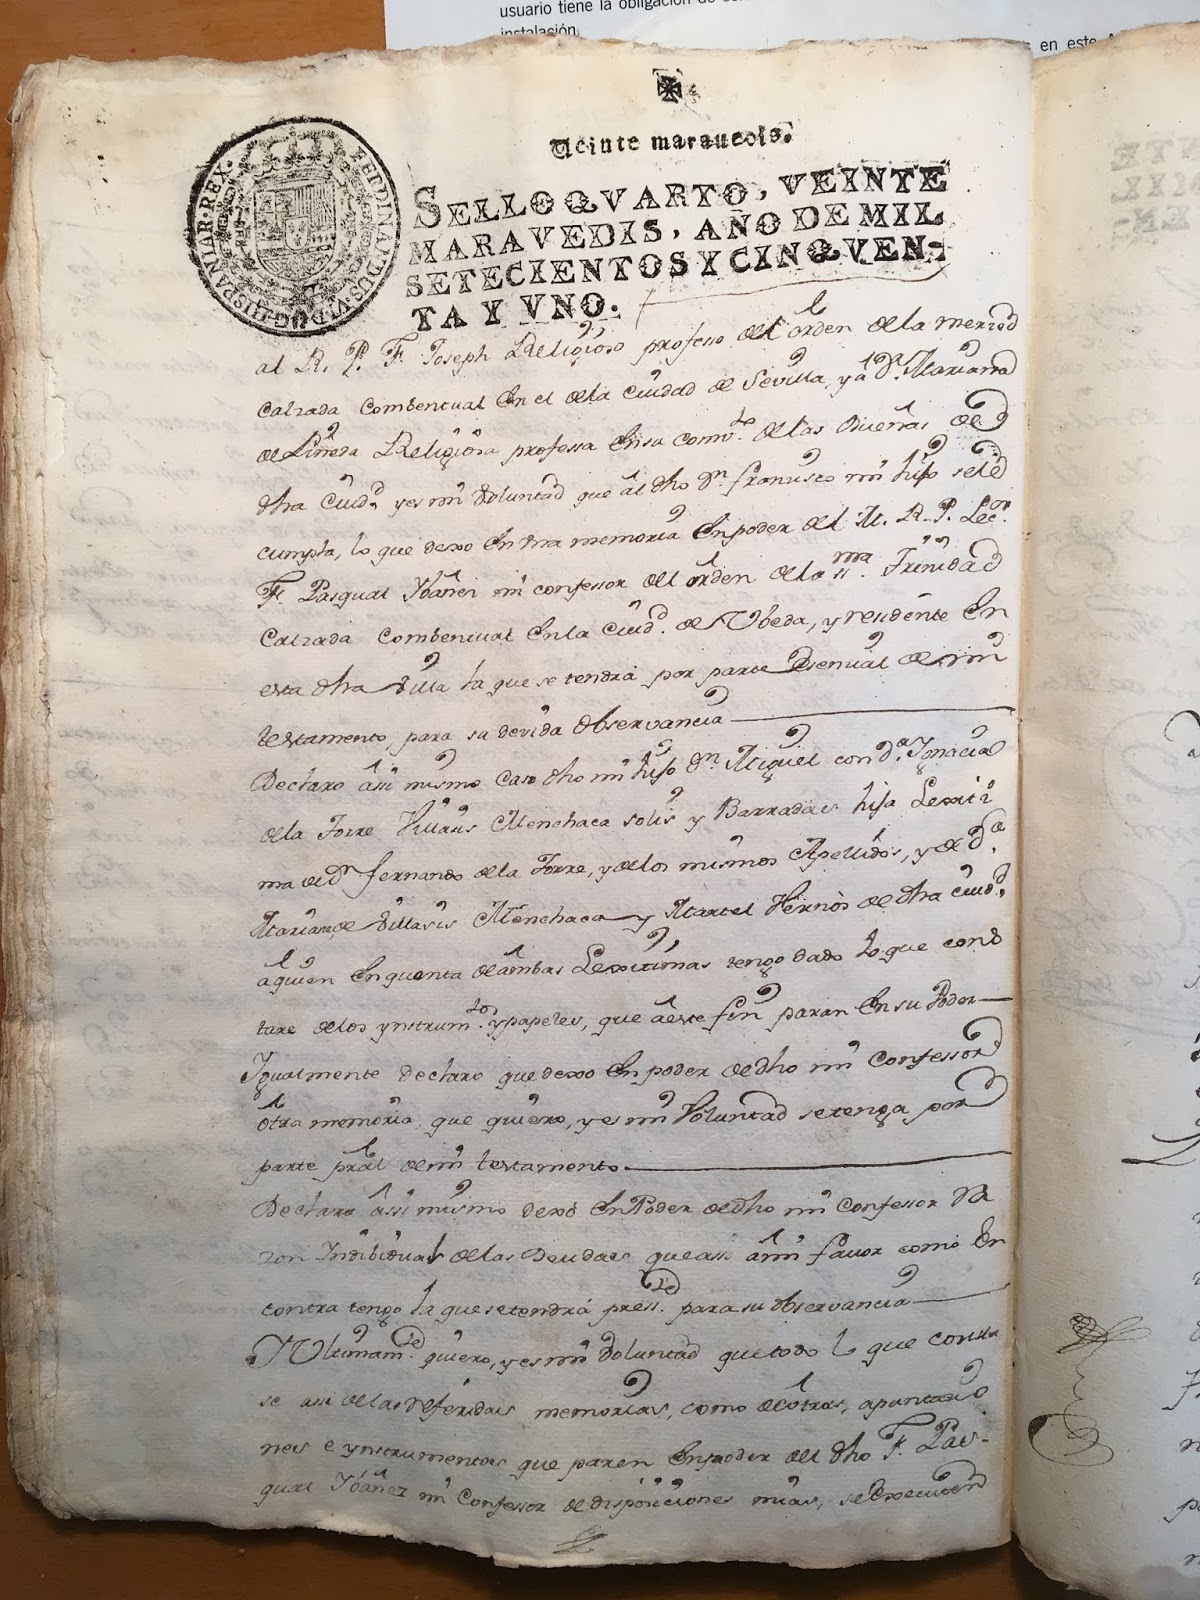 usuario tiene la obligación de
instalación.
en este
Veinte maravedis.
SELLO QVARTO, VEINTE
MARAVEDIS, AÑO DE MIL
SETECIENTOS Y CINQVEN-
TA Y VNO.
FERDINANDUS VI D G HISPANIAR REX
al R. P. Fr. Joseph Religioso professo del orden de la merzed
Calzada Combentual En el de la Ciudad de Sevilla, y a Da. Mariana
de Pineda Religiosa professa En su convto. de las Dueñas de
dha Ciudd. y es mi Voluntad que al dho Dn. francisco mi hijo se le
cumpla, lo que dexo En una memoria En poder del M. R. P. Lector.
Fr. Pasqual Ybañez mi confessor del orden de la ssma. Trinidad
Calzada Combentual En la Ciudd. de Vbeda, y residente En
esta dha Villa la que se tendrá por parte Esencial de mi
testamento, para su devida observancia
Declaro assi mismo Caso dho mi hijo Dn. Miguel con Da. Ygnacia
de la Torre Villasis Menchaca solis y Barradas hija Lexiti
ma de Dn fernando de la Torre, y de los mismos Apellidos, y de Da.
Mariana de Villasis Menchaca y Martel Vezinos de dha Ciudd.
a quien En quenta de ambas Lexitimas tengo dado lo que cons
tare de los ynstrumtos. y papeles, que a este fin paran En su Poder
Igualmente declaro que dexo En poder de dho mi Confessor
otra memoria que quiero, y es mi Voluntad se tenga por
parte pral de mi testamento
Declaro assi mismo dexo En Poder de dho mi Confessor Ra
zon Indibidual de las Deudas que assi a mi favor como En
contra tengo la que se tendrá presste. para su observancia
Vltimamte. quiero, y es mi Voluntad que todo lo que consta
se assi de las referidas memorias, como de otras, apuntacio
nes e ynstrumentos que paren En poder del dho Fr. Pas-
qual Ybañez mi Confessor de disposiciones mias, se Executen